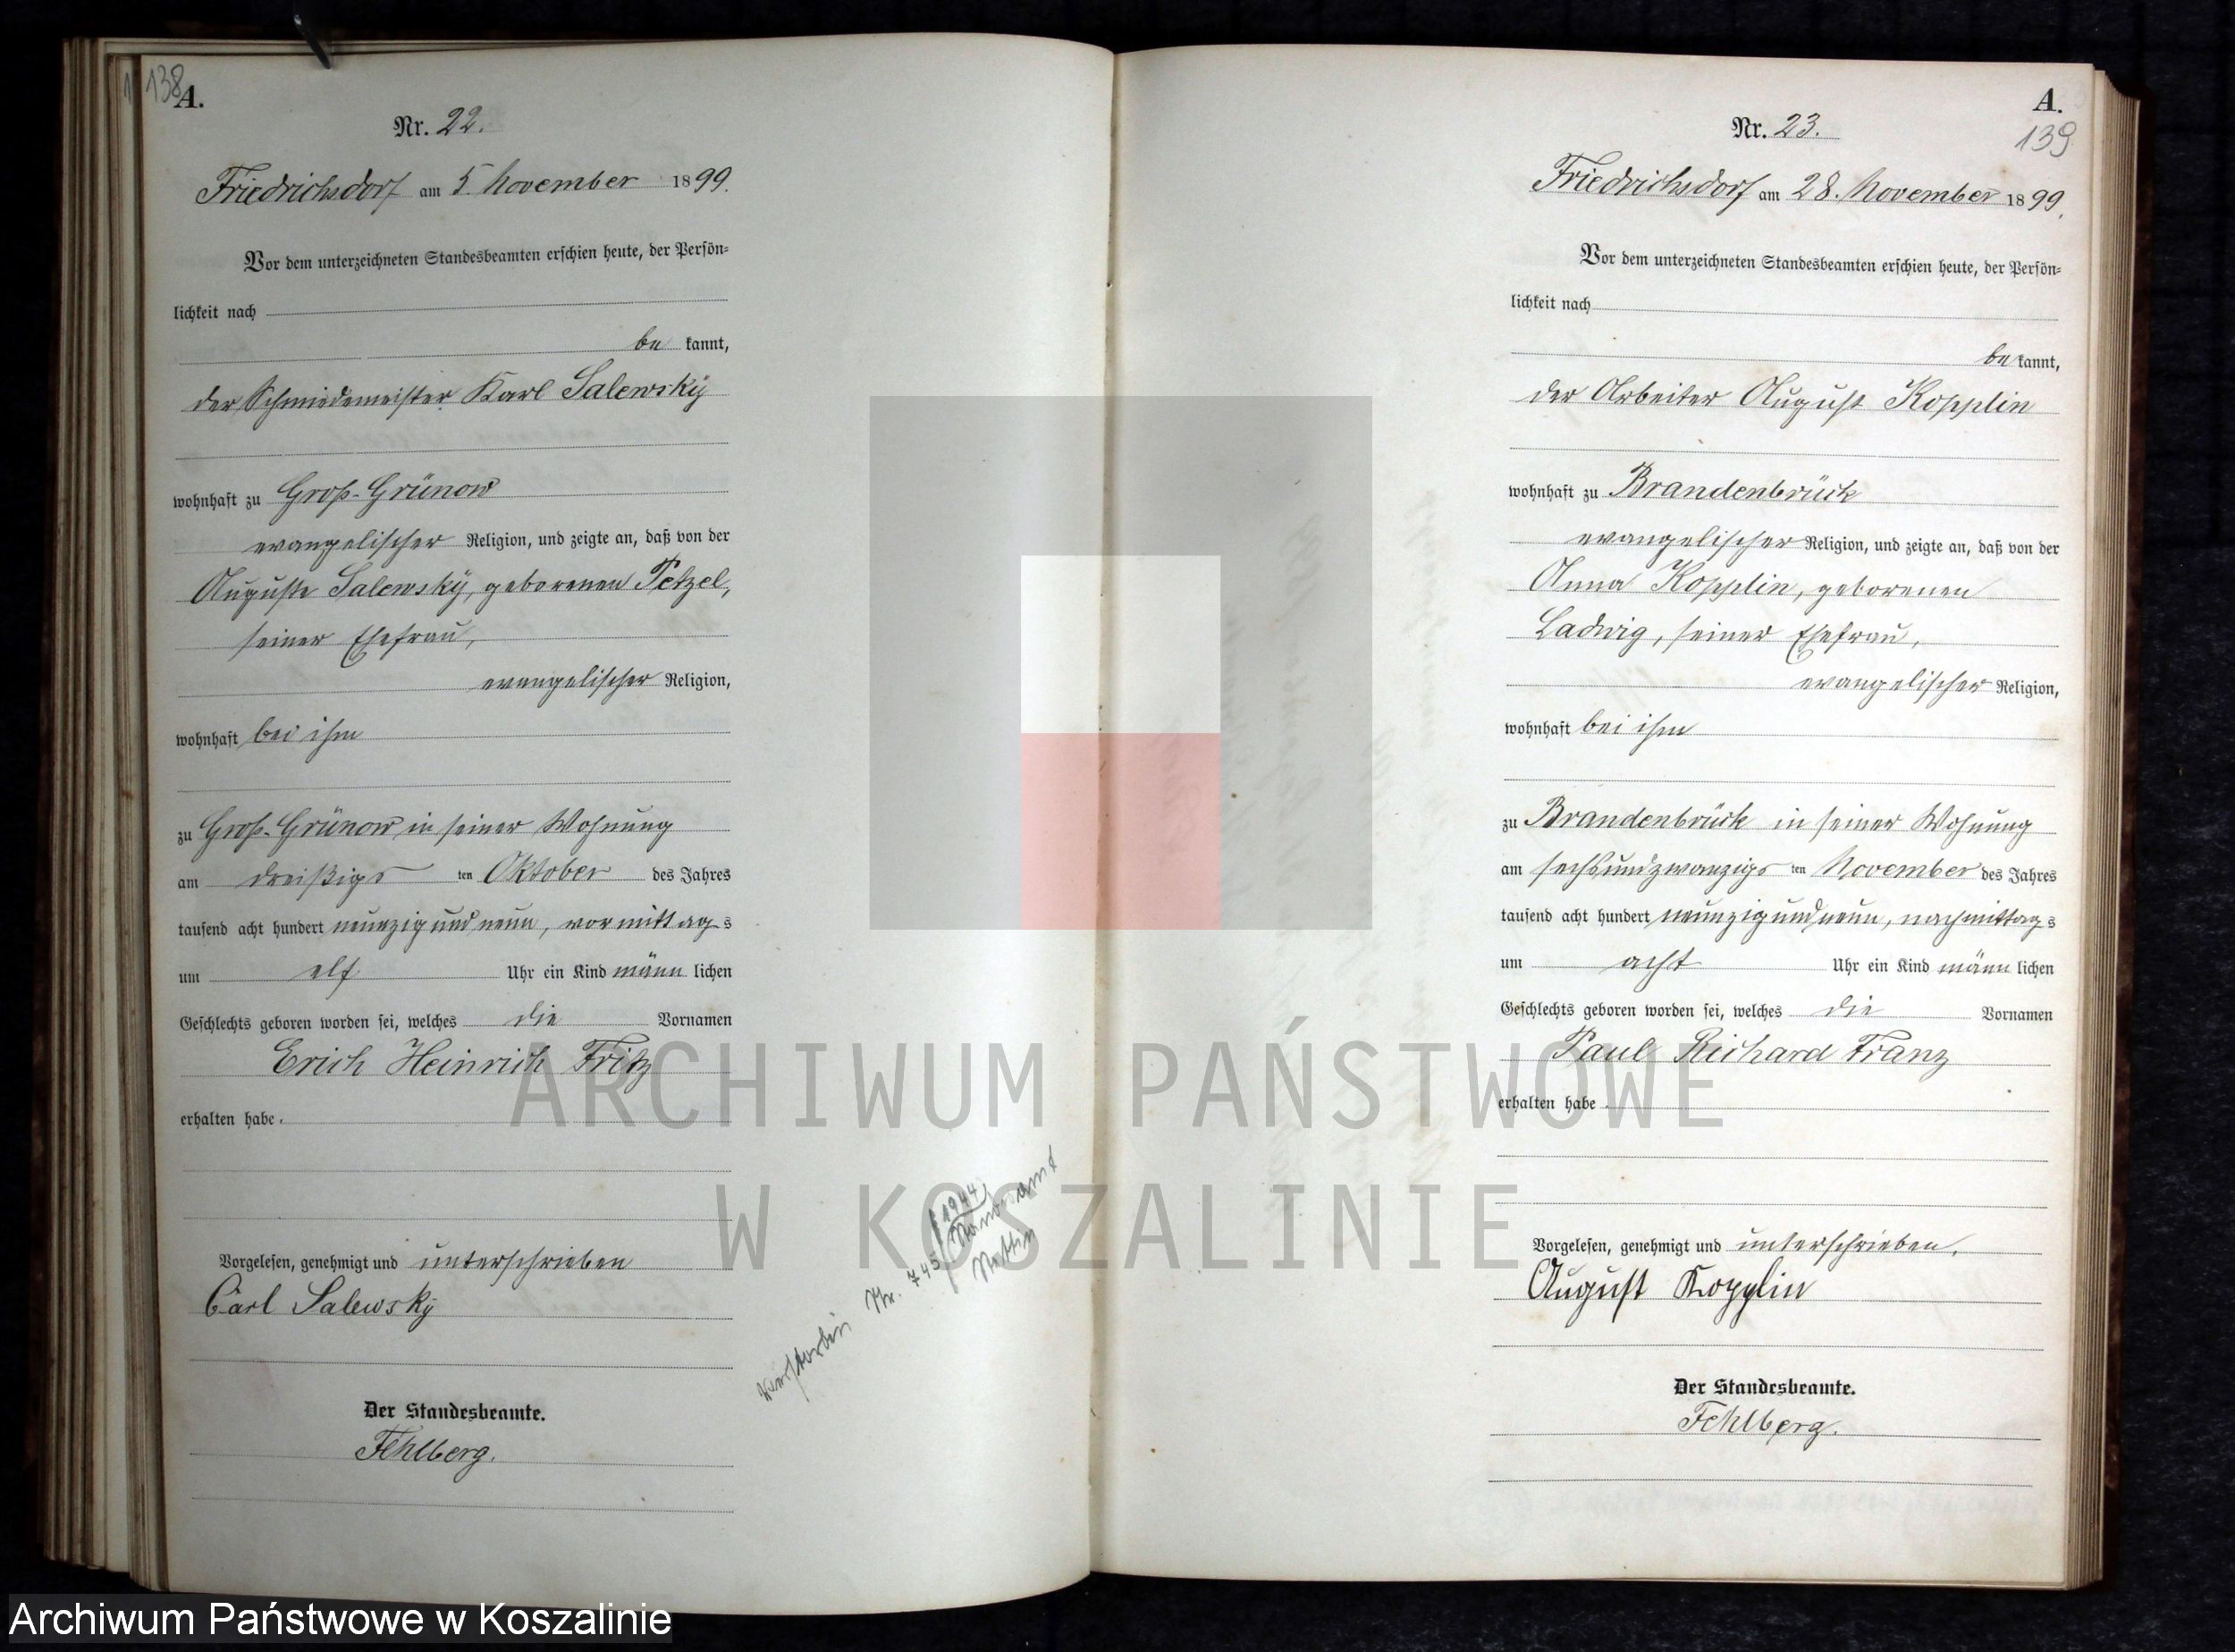 138
A.
Nr. 22.
Friedrichsdorf am 5. November 1899.
Vor dem unterzeichneten Standesbeamten erschien heute, der Persön-
lichkeit nach
be kannt,
der Schmiedemeister Karl Salewsky
wohnhaft zu Groß-Grünow
evangelischer Religion, und zeigte an, daß von der
Auguste Salewsky, geborenen Petzel,
seiner Ehefrau,
evangelischer Religion,
wohnhaft bei ihm
zu Groß-Grünow in seiner Wohnung
am dreißigs ten Oktober des Jahres
tausend acht hundert neunzig und neun, vormittags
um elf Uhr ein Kind männlichen
Geschlechts geboren worden sei, welches die Vornamen
Erich Heinrich Fritz
erhalten habe.
Vorgelesen, genehmigt und unterschrieben
Carl Salewsky
Der Standesbeamte.
Fehlberg.
verstorben Nr. 745/1944
Standesamt
Stettin
A.
139
Nr. 23.
Friedrichsdorf am 28. November 1899.
Vor dem unterzeichneten Standesbeamten erschien heute, der Persön-
lichkeit nach
be kannt,
der Arbeiter August Kopplin
wohnhaft zu Brandenbrück
evangelischer Religion, und zeigte an, daß von der
Anna Kopplin, geborenen
Ladwig, seiner Ehefrau,
evangelischer Religion,
wohnhaft bei ihm
zu Brandenbrück in seiner Wohnung
am sechsundzwanzigs ten November des Jahres
tausend acht hundert neunzig und neun, nachmittags
um acht Uhr ein Kind männlichen
Geschlechts geboren worden sei, welches die Vornamen
Paul Richard Franz
erhalten habe.
Vorgelesen, genehmigt und unterschrieben.
August Kopplin
Der Standesbeamte.
Fehlberg.
ARCHIWUM PAŃSTWOWE
W KOSZALINIE
Archiwum Państwowe w Koszalinie